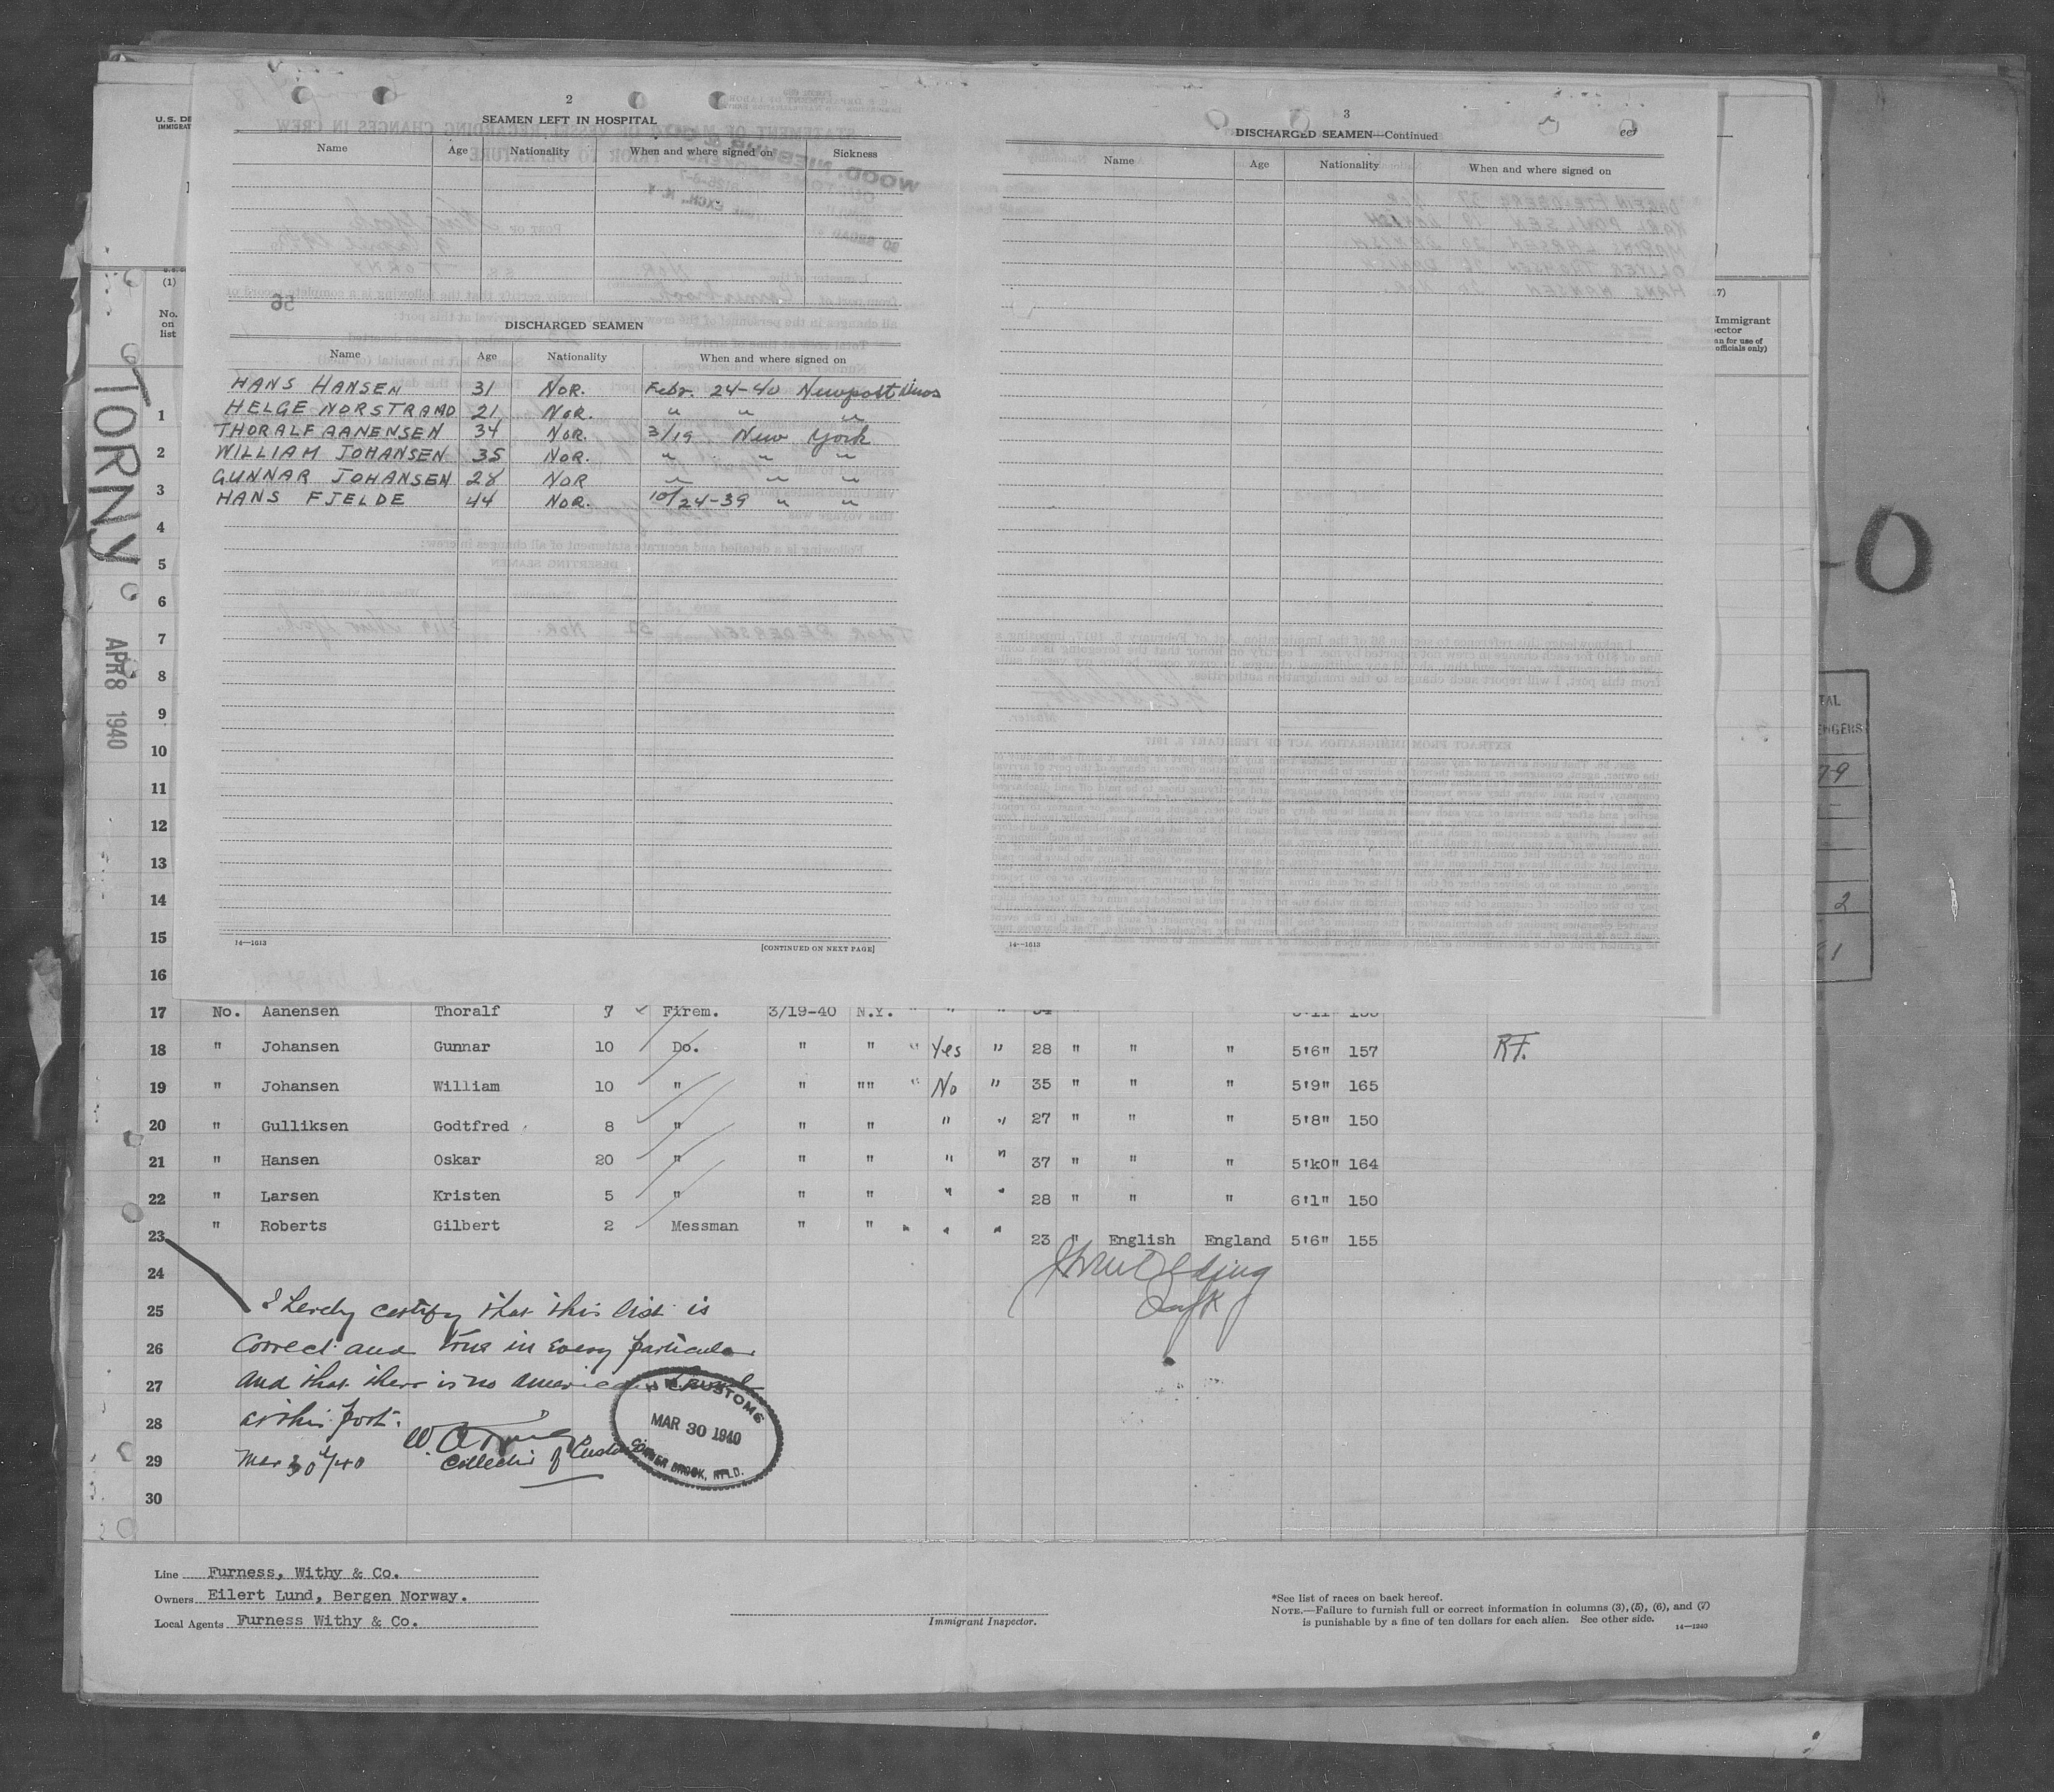 U.S. DE
IMMIGRAT
2
SEAMEN LEFT IN HOSPITAL
Name Age Nationality When and where signed on Sickness
DISCHARGED SEAMEN
Name Age Nationality When and where signed on
HANS HANSEN 31 NOR. Febr. 24-40 Newport News
HELGE NORSTRAND 21 NOR. " " "
THORALF AANENSEN 34 NOR. 3/19 New York
WILLIAM JOHANSEN 35 NOR. " " "
GUNNAR JOHANSEN 28 NOR " " "
HANS FJELDE 44 NOR. 10/24-39 " "
14—1613 [CONTINUED ON NEXT PAGE]
3
DISCHARGED SEAMEN—Continued
Name Age Nationality When and where signed on
14—1613
TORNY
APR 8 1940
(1)
No. on list
7)
Immigrant
pector
an for use of
officials only)
O
TAL
ENGERS
79
2
1
1
2
3
4
5
6
7
8
9
10
11
12
13
14
15
16
17 No. Aanensen Thoralf 7 Firem. 3/19-40 N.Y. " " "
18 " Johansen Gunnar 10 Do. " " " Yes " 28 " " " 5'6" 157 RF.
19 " Johansen William 10 " " "" " No " 35 " " " 5'9" 165
20 " Gulliksen Godtfred 8 " " " " " 27 " " " 5'8" 150
21 " Hansen Oskar 20 " " " " " 37 " " " 5'k0" 164
22 " Larsen Kristen 5 " " " " " 28 " " " 6'1" 150
23 " Roberts Gilbert 2 Messman " " " " " 23 " English England 5'6" 155
24
25 I hereby certify that this list is
26 correct and true in every particular
27 and that there is no american Consul
28 at this port.
29 Mar 30th/40 Collector of Customs
30
H.M. CUSTOMS
MAR 30 1940
CORNER BROOK, NFLD.
Line Furness, Withy & Co.
Owners Eilert Lund, Bergen Norway.
Local Agents Furness Withy & Co.
Immigrant Inspector.
*See list of races on back hereof.
NOTE.—Failure to furnish full or correct information in columns (3), (5), (6), and (7)
is punishable by a fine of ten dollars for each alien. See other side.
14—1240